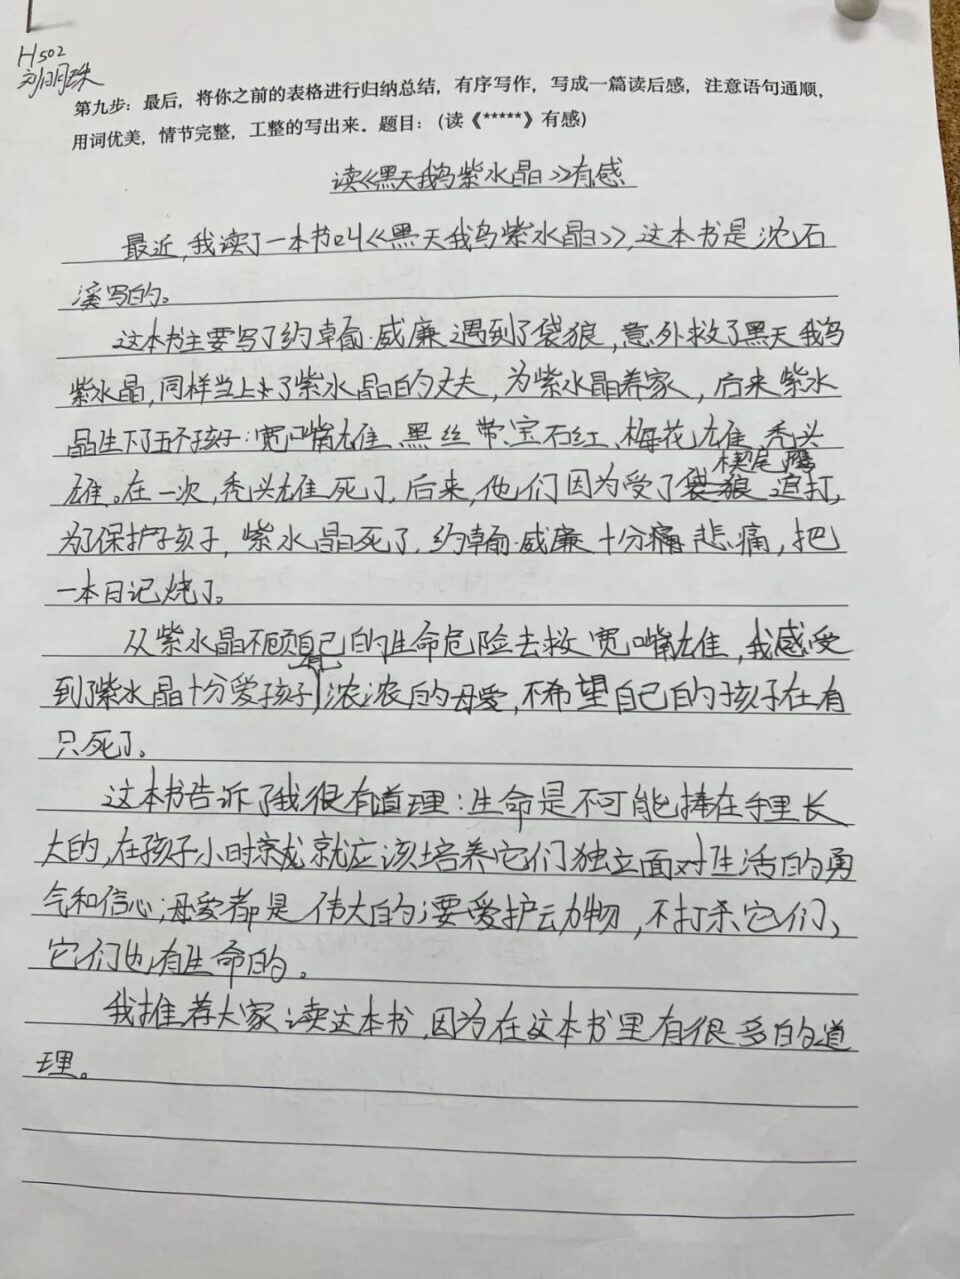 H502
刘明珠
第九步：最后，将你之前的表格进行归纳总结，有序写作，写成一篇读后感，注意语句通顺，
用词优美，情节完整，工整的写出来。题目：(读《*****》有感)
读《黑天鹅紫水晶》有感
最近，我读了一本书叫《黑天鹅紫水晶》，这本书是沈石
溪写的。
这本书主要写了约翰·威廉遇到了袋狼，意外救了黑天鹅
紫水晶，同样当上了紫水晶的丈夫，为紫水晶养家，后来紫水
晶生下了五个孩子：宽嘴雄、黑丝带、宝石红、梅花雄、秃头
雄。在一次，秃头雄死了，后来，他们因为受了楔尾鹰追打，
为了保护孩子，紫水晶死了，约翰·威廉十分悲痛，把
一本日记烧了。
从紫水晶不顾自己的生命危险去救宽嘴雄，我感受
到了紫水晶十分爱孩子，有浓浓的母爱，不希望自己的孩子在有
只死了。
这本书告诉了我很有道理：生命是不可能捧在手里长
大的，在孩子小时就应该培养它们独立面对生活的勇
气和信心；母爱都是伟大的；要爱护动物，不打杀它们，
它们也有生命的。
我推荐大家读这本书，因为在这本书里有很多的道
理。